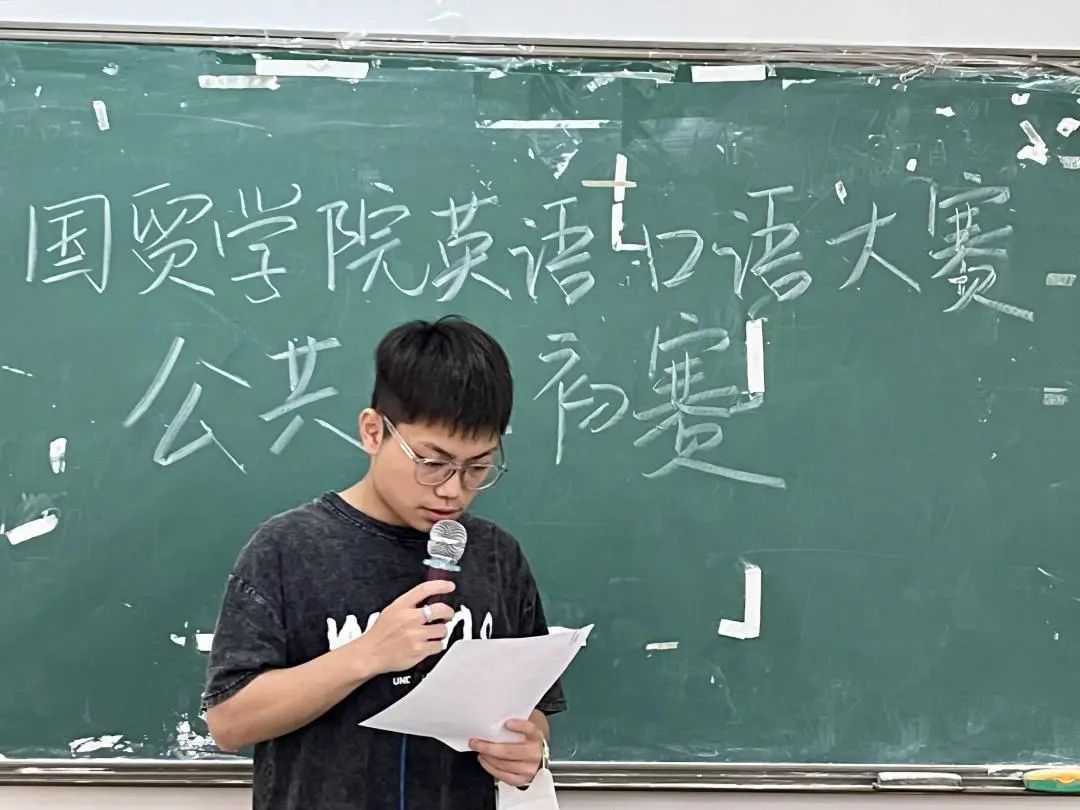 国贸学院英语口语大赛
公共 初赛
UNC